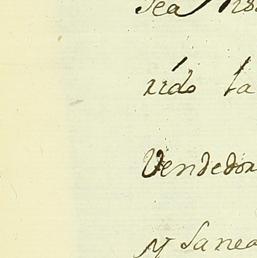 sea
rido la
Vendedor
y sanea